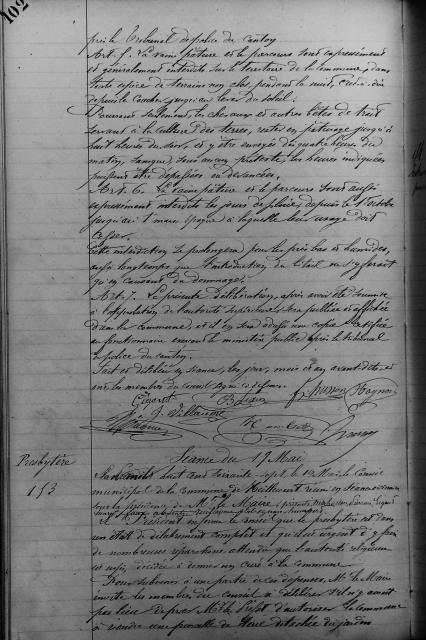 102
près le Tribunal de police du canton.
Art. 5. La vaine pâture et le parcours sont expressément
et généralement interdits sur le territoire de la commune, dans
toute espèce de terrains non clos, pendant la nuit, c'est-à-dire
depuis le coucher jusqu'au lever du soleil.
Pourront seulement, les chevaux et autres bêtes de trait
servant à la culture des terres, rester en pâturage jusqu'à
huit heures du soir, et y être envoyés dès quatre heures du
matin, sans que, sous aucun prétexte, les heures indiquées
puissent être dépassées ou devancées.
Art. 6. La vaine pâture et le parcours sont aussi
expressément interdits les jours de pluie, depuis le 1er octobre
jusqu'au 1er mars époque à laquelle leur usage doit
cesser.
Cette interdiction se prolongera pour les prés bas et humides,
aussi longtemps que l'introduction du bétail y ferait
ou causerait du dommage.
Art. 7. La présente délibération, après avoir été soumise
à l'approbation de l'autorité supérieure, sera publiée et affichée
dans la commune, et il en sera adressé une copie certifiée
au fonctionnaire exerçant le ministère public près le tribunal
de police du canton.
Fait et délibéré en séance, les jour, mois et an avant dits, et
ont les membres du conseil signé ci-dessous.
Séance du 17 Mai
Presbytère
153
huit cent soixante-sept, le 17 Mai, le Conseil
municipal de la Commune de réuni en
sous la présidence de M. le Maire,
Le Président informe le conseil que le presbytère est dans
un état de délabrement complet et qu'il est urgent d'y faire
de nombreuses réparations attendu que l'autorité religieuse
est enfin décidée à donner un curé à la commune
Pour subvenir à une partie de ces dépenses, Mr le Maire
invite les membres du conseil à délibérer s'il n'y aurait
pas lieu de prier Mr le Préfet d'autoriser la commune
à vendre une parcelle de terre détachée du jardin